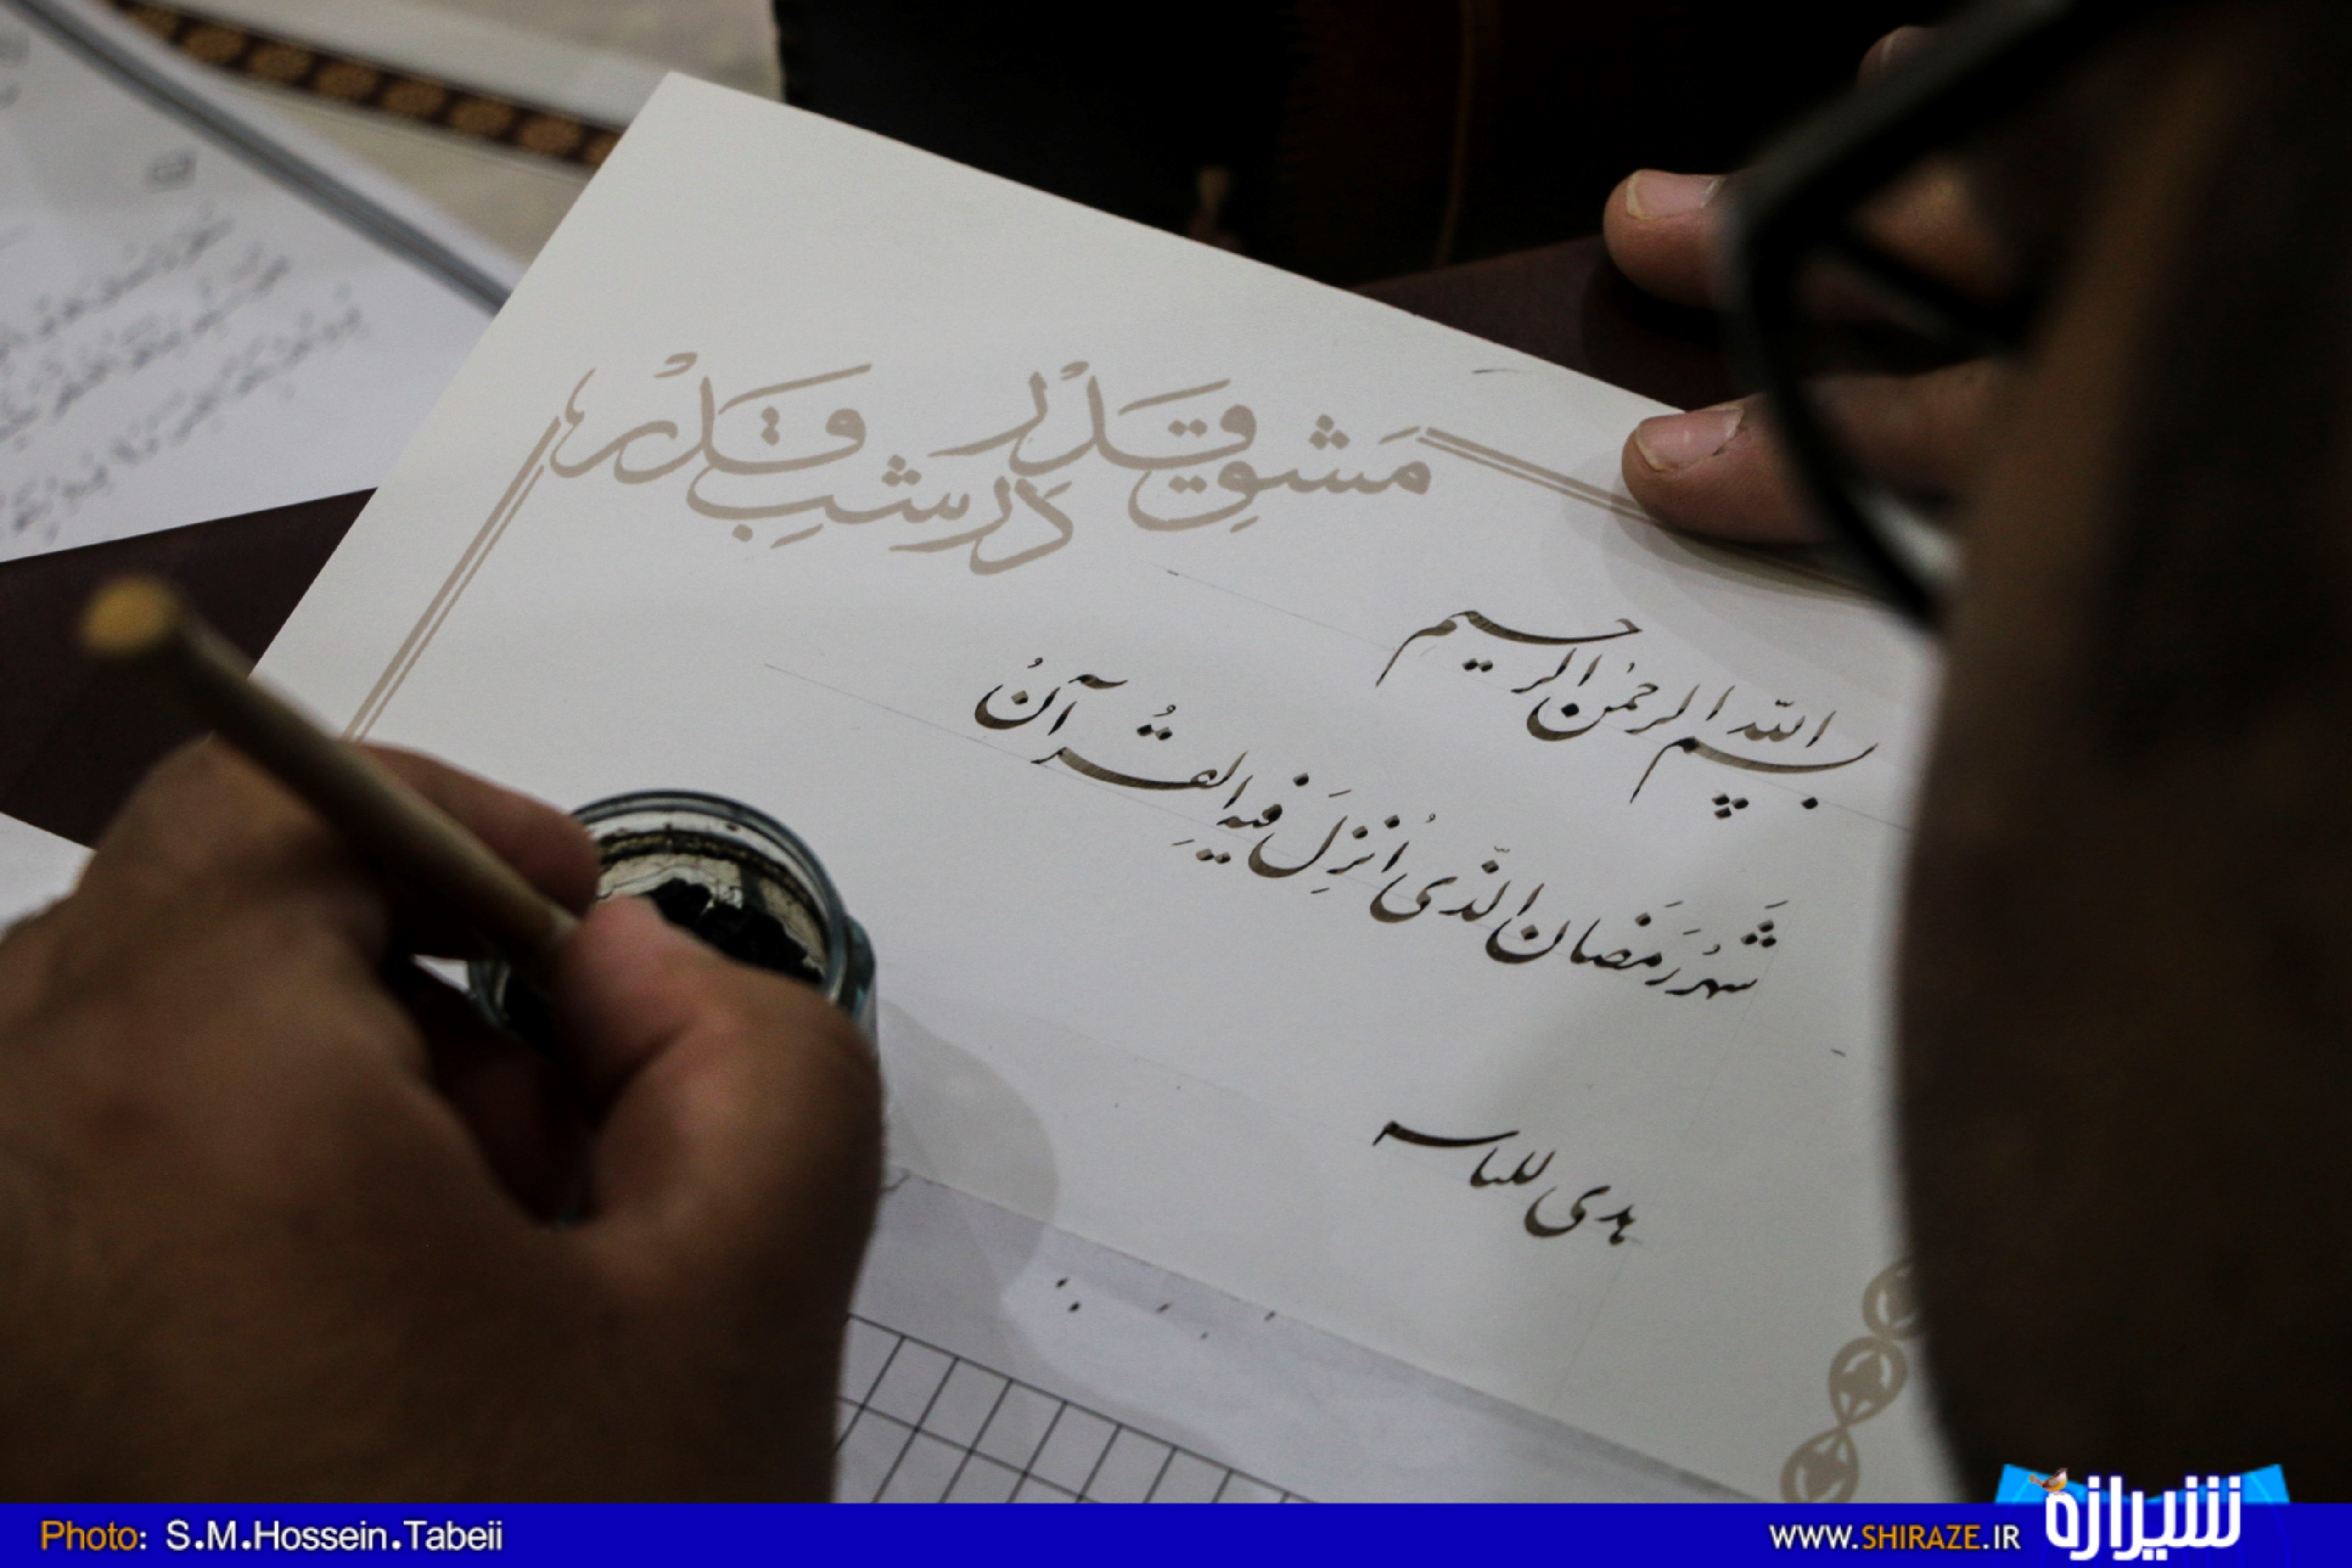 مَشقِ قَدْر
دَر شبِ قَدْر
بسم الله الرحمن الرحيم
شَهْرُ رَمَضان الَّذى اُنْزِلَ فيهِ القُرآنُ
هدى للناس
Photo: S.M.Hossein.Tabeii
WWW.SHIRAZE.IR
شیرازه